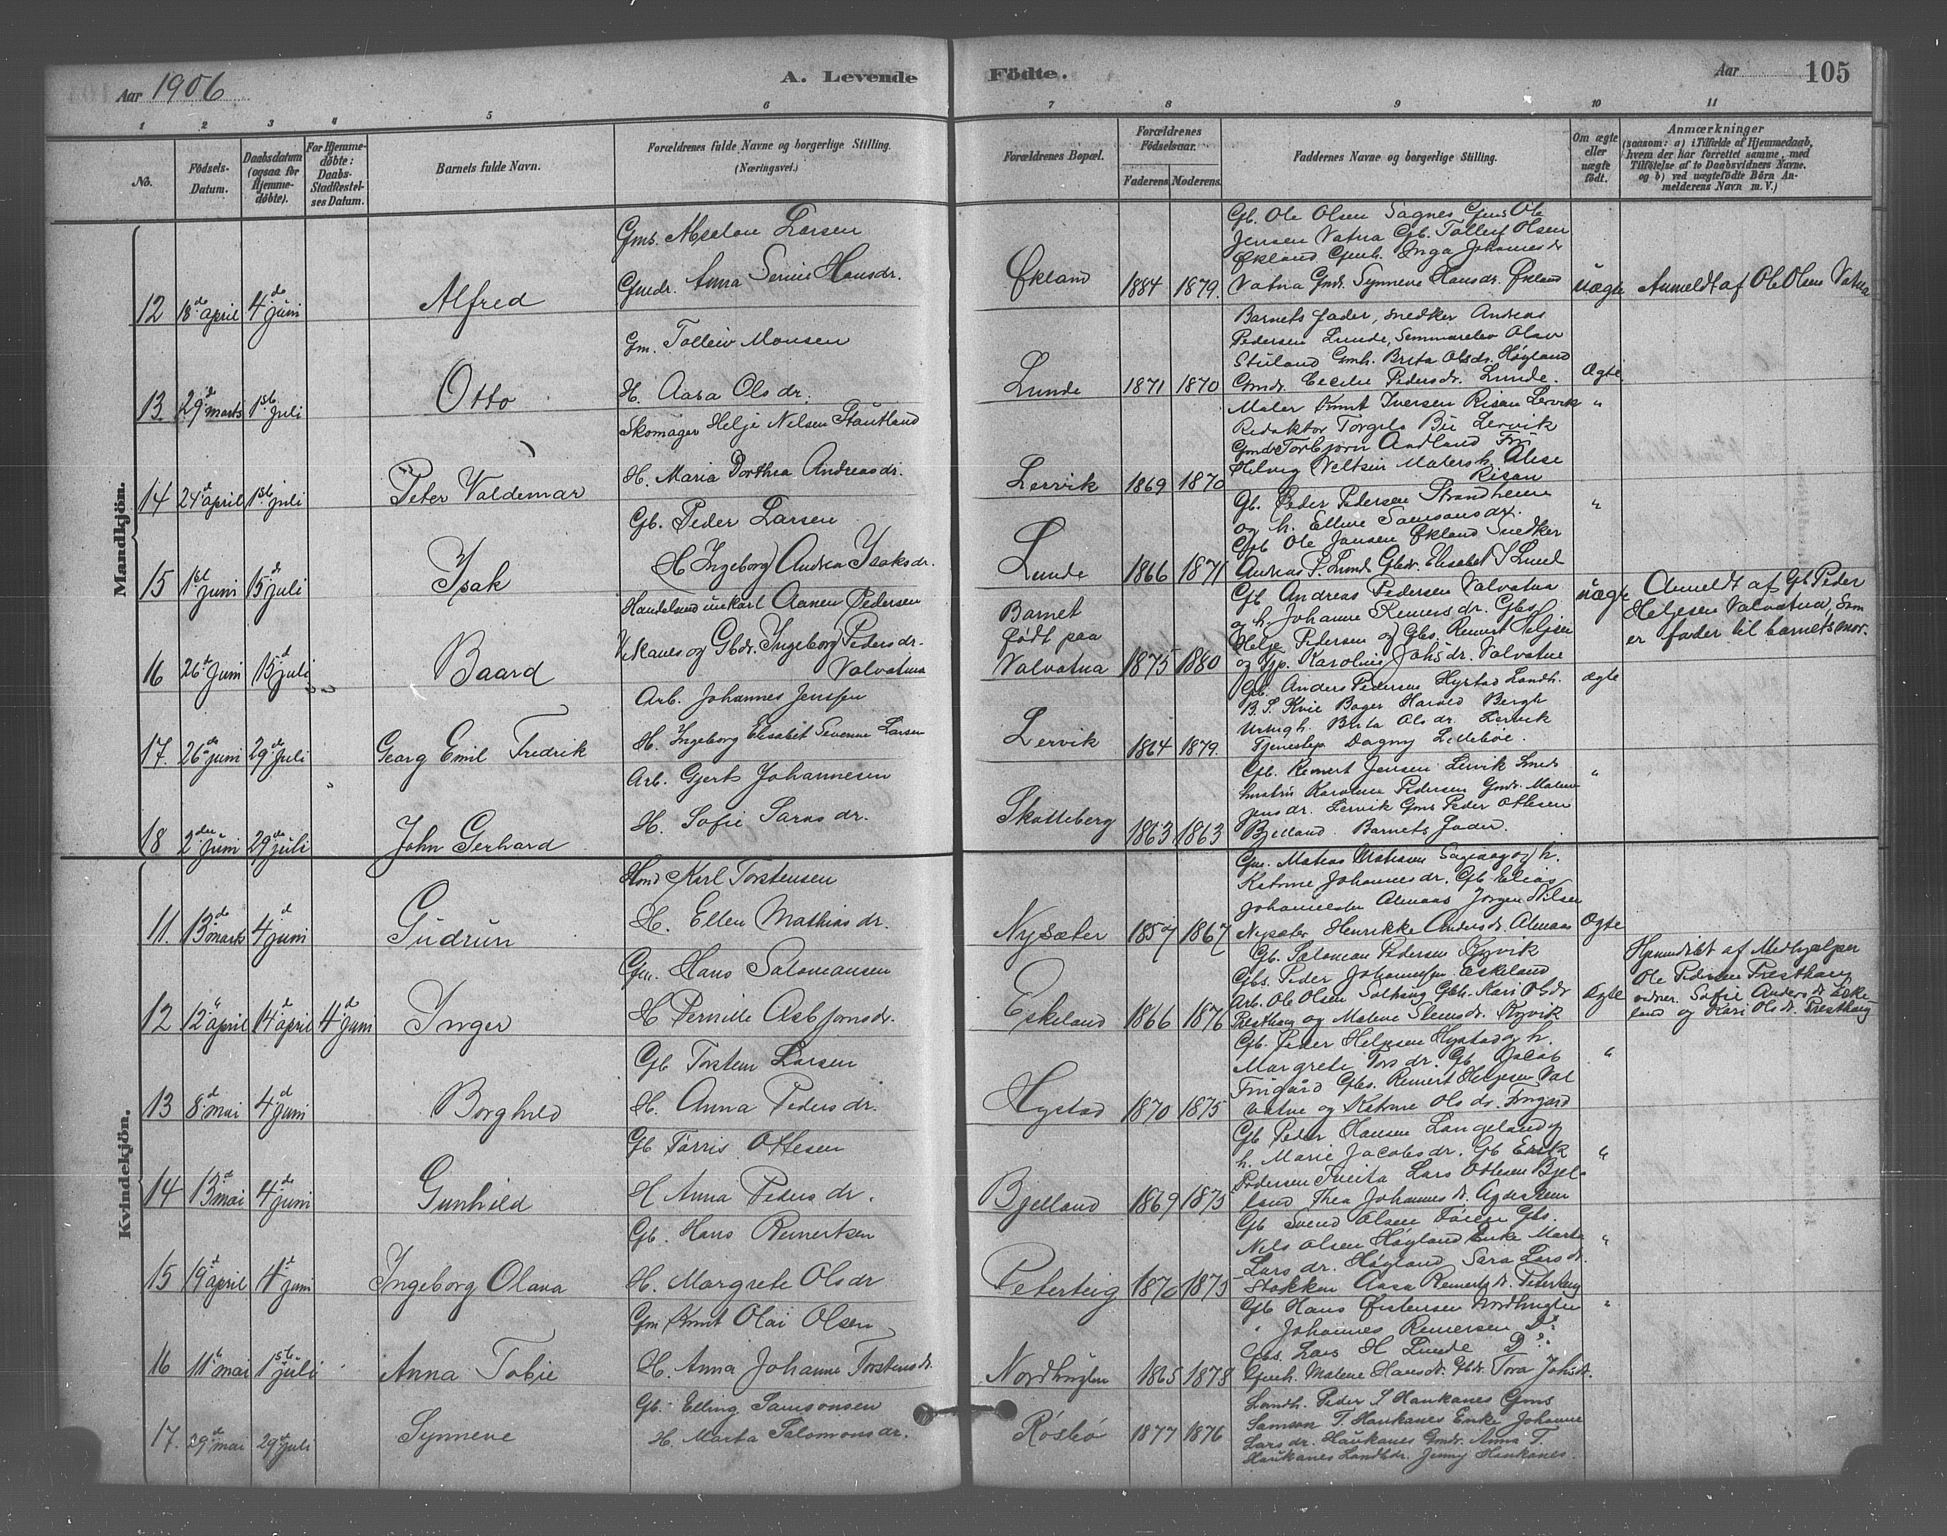 Aar 1906
A. Levende
Födte.
Aar
105
1 2 3 4 5 6 7 8 9 10 11
No.
Födsels-Datum.
Daabsdatum (ogsaa for Hjemmedøbte).
For Hjemmedøbte: Daabs-Stadfæstelses Datum.
Barnets fulde Navn.
Forældrenes fulde Navne og borgerlige Stilling. (Næringsvei.)
Forældrenes Bopæl.
Forældrenes Födselsaar.
Faderens. Moderens.
Faddernes Navne og borgerlige Stilling.
Om ægte eller uægte födt.
Anmærkninger
(saasom: a) i Tilfælde af Hjemmedaab, hvem der har forrettet samme, med Tilföielse af to Daabsvidners Navne. og b) ved uægtefödte Börn Anmelderens Navn m. V.)
Mandkjön.
12 18de april 4de juni Alfred
Gms. Abselon Larsen
Gmdr. Anna Serine Hansdr.
Økland 1884 1879.
Gb. Ole Olsen Sagnes Gms Ole
Jensen Vatna Gb. Tolleif Olsen
Økland Gmh. Inga Johannesdr
Vatna Gmdr. Synneve Hansdr. Økland
uægte
Anmeldt af Ole Olsen Vatna
13 29de marts 1ste juli Otto
Gm. Tolleiv Monsen
H. Aasa Olsdr.
Lunde 1871 1870
Barnets fader, snedker Andreas
Pedersen Lunde, Olav
Gmh. Brita Olsdr. Høyland
Gmdr. Cecilie Pedersdr. Lunde.
Ægte
14 24de april 1ste juli Peter Valdemar
Skomager Helje Nilsen Stautland
H. Maria Dorthea Andreasdr.
Lervik 1869 1870
Maler Knut Iversen Risan Lervik
Redaktør Torgils Bü Lervik
Torbjørn Aadland
Risan
"
15 1ste juni 15de juli Isak
Gb. Peder Larsen
H Ingeborg Andrea Isaksdr.
Lunde 1866 1871
Gb. Peder Pedersen Strandheim
og h. Elline Samsonsdr.
Gb Ole Jansen Økland Snedker
Andreas P. Lunde Gbdr. Elisabet I Lund
"
16 26de Juni 15de juli Baard
Aanen Pedersen
Vikanes og Gbdr. Ingeborg Pedersdr.
Valvatna
Barnet
født paa
Valvatna 1875 1880
Gb Andreas Pedersen Valvatna
og h. Johanne Reinersdr. Gbs
Helje Pedersen og Gbs. Reinert Heljesen
og Karoline Johsdr. Valvatne
uægte
Anmeldt af Gb Peder
Heljesen Valvatna, som
er fader til barnets mor.
17. 26de juni 29de juli Georg Emil Fredrik
Arb. Johannes Jenssen
H. Ingeborg Elisabet Severine Larsen
Lervik 1864 1879.
Gb. Anders Pedersen Hystad Landh.
B. S. Kvie Bager Harald Bergh
Brita Olsdr. Lervik
Tjenestep Dagny Lillebøe.
ægte
18 2den juni 29de juli John Gerhard
Arb. Gjert Johannesen
H. Sofie Larsdr.
Skotteberg 1863 1863
Gb. Reinert Jensen Lervik
Karoline Pedersen Gmdr.
Lervik Gms Peder Ottesen
Bjelland. Barnets fader.
"
Kvindekjön.
11. 13de marts 4de juni Gudrun
Karl Torstensen
H. Ellen Mathiasdr.
Nysæter 1857 1867
Gm. Matias Matiasen og h.
Katrine Johannesdr. Gb Elias
Johannesen Almaas Jørgen Nilsen
Nysæter Henrikke Andersdr. Almaas
Ægte
12 12te april 14de april 4de juni Inger
Gm. Hans Salomonsen
H Pernille Asbjørnsdr.
Eskeland 1866 1876
Gb. Salomon Pedersen Røyvik
Gbs. Peder Johannessen Eskeland
Arb. Ole Olsen Gbh. Kari Olsdr
Presthaug og Malene Røyvik
Ægte
Hjemdøbt af Medhjælper
Ole Pedersen Presthaug
Sofie Andersdr Eske-
land og Kari Olsdr. Presthaug
13 8de mai 4de juni Borghild
Gb Torstein Larsen
H. Anna Pedersdr.
Hystad 1870 1875
Gb. Peder Heljesen Hystad og h.
Margrete Gb Jakob
Gbs. Reinert Heljesen Val
vatne og Katrine Olsdr.
"
14 13de mai 4de juni Gunhild
Gb Tørris Ottesen
H Anna Pedersdr.
Bjelland 1869 1875
Gb Peder Hansen Langeland og
h. Marie Jacobsdr. Gb Erik
Pedersen Tveita Lars Ottesen Bjel
land Thea Johannesdr.
"
15 19de april 4de juni Ingeborg Olava
Gb. Hans Reinertsen
H. Margrete Olsdr
Peterteig 1870 1875
Gb Svend Olsen Gbs.
Nils Olsen Høyland Enke Marta
Larsdr. Høyland Sara Larsdr.
Stokken Aasa Reinertsdr. Peterteig
"
16 11te mai 1ste juli Anna Tobie
Gm Knut Olai Olsen
H. Anna Johanne Torstensdr.
Nordhuglen 1865 1878
Gb Hans Østensen Nordhuglen
" Johannes Reinersen Do.
Gbs. Lars H Lunde Do.
Gmh. Malene Hansdr. Gbdr. Tora Johsdr.
"
17. 29de mai 29de juli Synneve
Gb. Elling Samsonsen
H. Marta Salomonsdr.
Røsbø 1877 1876
Landh. Peder S Haukanes Gms
Samson T. Haukanes Enke Johanne
Larsdr. Haukanes Gmdr. Anna T.
Haukanes Landhdr. Jenny Haukanes.